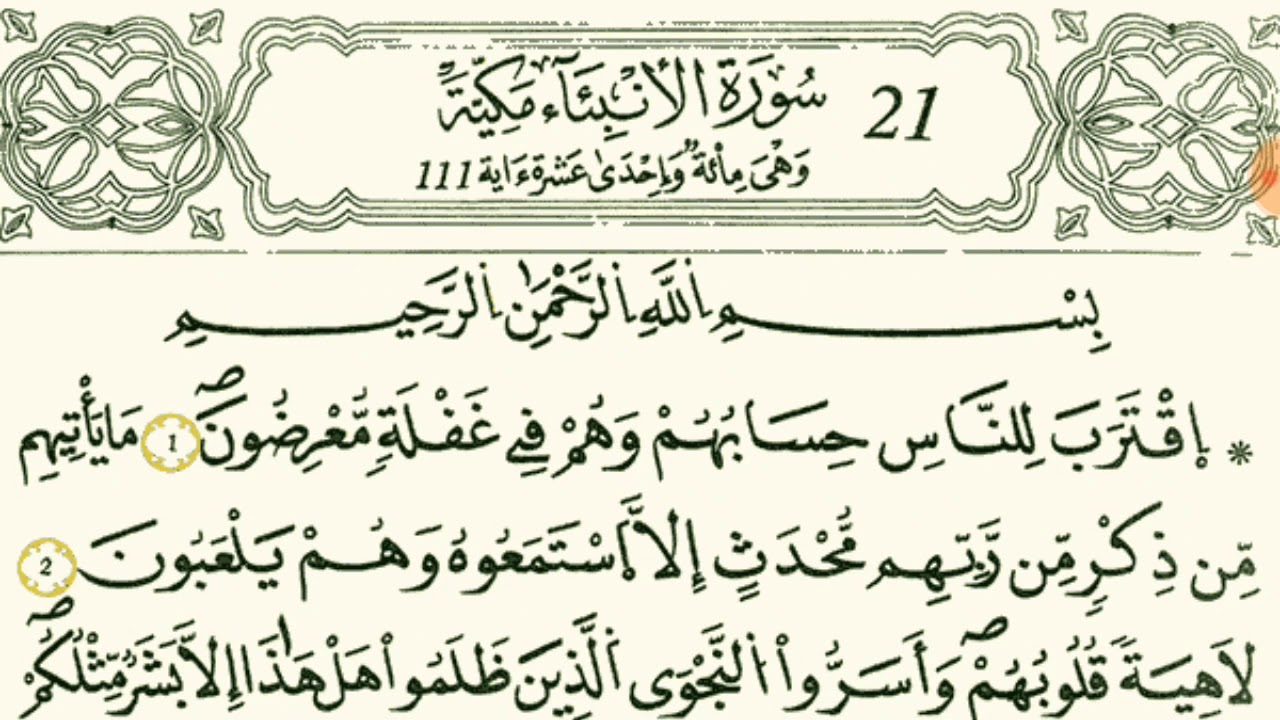 سُورَةُ الْأَنْبِئَآءِ مَكِّيَّةٌ 21
وَهْىَ مِاْئَةٌ وَإِحْدَىٰ عَشْرَةَ ءَايَة 111
بِسْمِ اِ۬للَّهِ اِ۬لرَّحْمَٰنِ اِ۬لرَّحِيمِ
* اِ۪قْتَرَبَ لِلنَّاسِ حِسَابُهُمْ وَهُمْ فِے غَفْلَةٍ مُّعْرِضُونَۖ 1 مَا يَأْتِيهِم
مِّن ذِكْرٍ مِّن رَّبِّهِم مُّحْدَثٍ إِلاَّ اَ۪سْتَمَعُوهُ وَهُمْ يَلْعَبُونَ 2
لَاهِيَةً قُلُوبُهُمْۖ وَأَسَرُّواْ اُ۬لنَّجْوَى اَ۬لَّذِينَ ظَلَمُواْ هَلْ هَٰذَا إِلاَّ بَشَرٌ مِّثْلُكُمْۖ